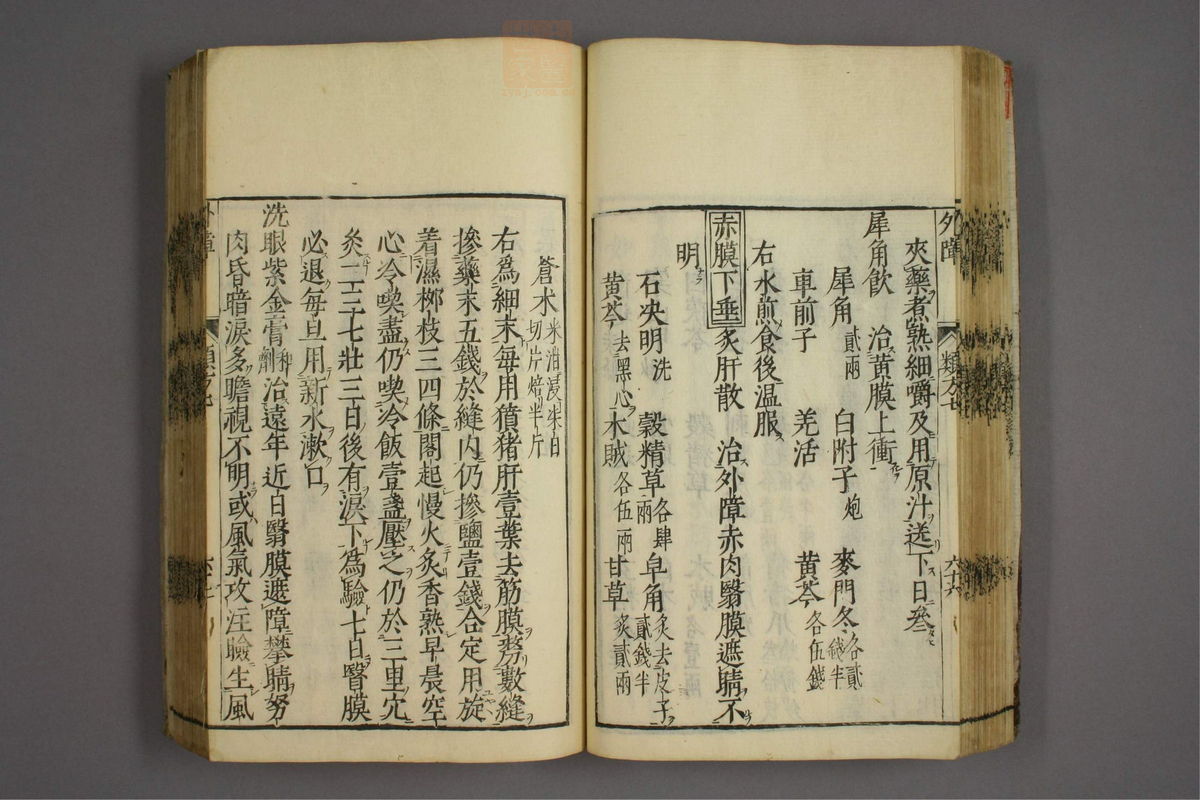 外障
類方七
六十六
夾藥煮熟細嚼及用原汁送下日叁
犀角飲　治黃膜上衝
犀角貳兩　白附子炮　麥門冬各貳錢半
車前子　羌活　黃芩各伍錢
右水煎食後溫服
赤膜下垂　炙肝散　治外障赤肉瞖膜遮睛不
明
石决明洗　穀精草各肆兩　皁角炙去皮子貳錢半
黃芩去黑心　木賊各伍兩　甘草炙貳兩
蒼朮米泔浸柒日切片焙半斤
右爲細末每用豶猪肝壹葉去筋膜剺數縫
摻藥末五錢於縫內仍摻鹽壹錢合定用旋
着濕柳枝三四條閣起慢火炙香熟早晨空
心冷喫盡仍喫冷飯壹盞壓之仍於三里穴
灸二三七壯三日後有淚下爲驗七日瞖膜
必退每旦用新水漱口
洗眼紫金膏神劑　治遠年近日瞖膜遮障攀睛努
肉昏暗淚多瞻視不明或風氣攻注瞼生風
外障
類方七
六十七